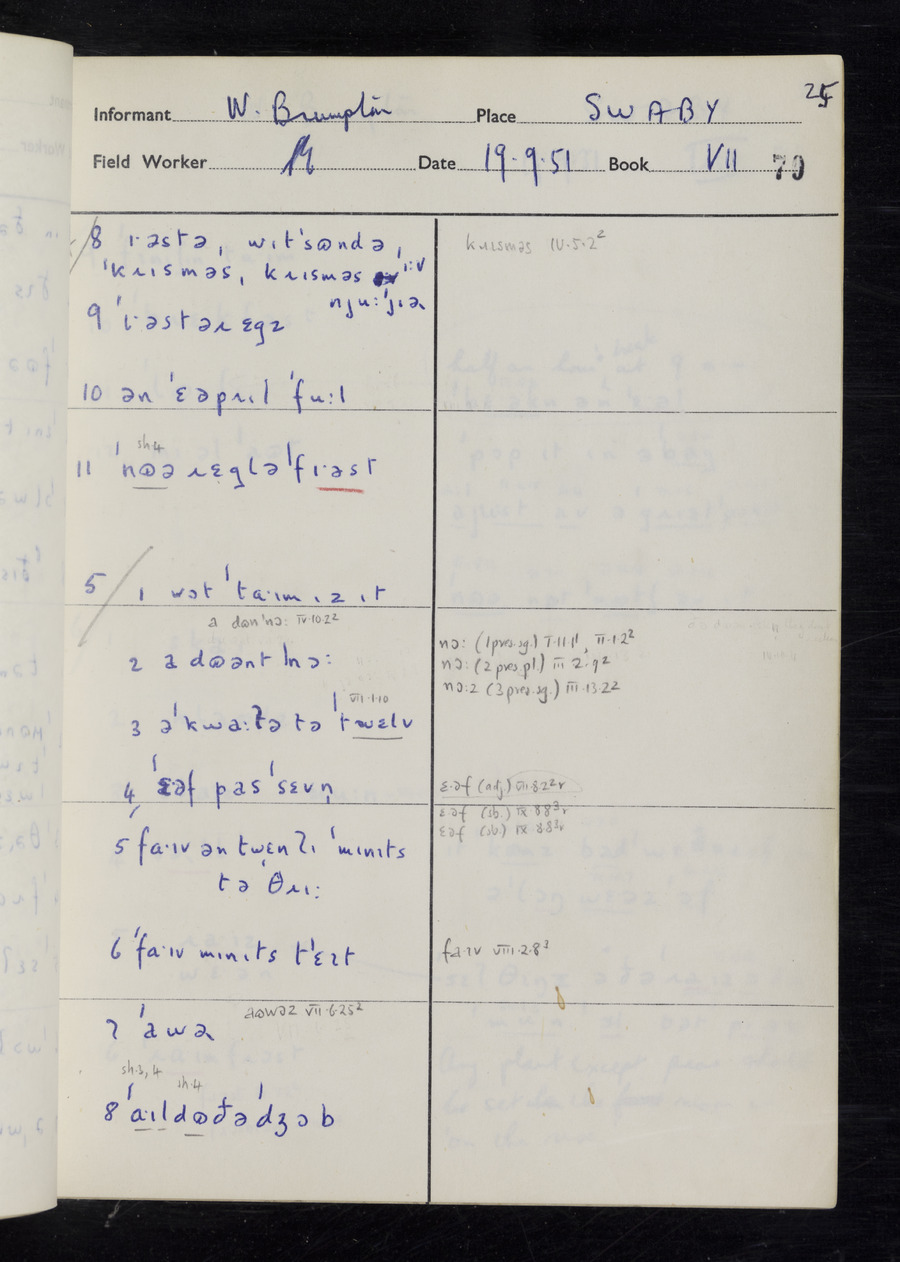 25
Informant W. Brumpton Place SWABY
Field Worker Date 19.9.51 Book VII 70
8 ɪ·əstə, wɪt'sɒndə,
'kɹɪsməs, kɹɪsməs i:v
nju:'jɪə
kɹɪsməs IV.5.2²
9 'ɪ·əstəɹ ɛgz
10 ən 'ɛəpɹɪl 'fu:l
sh.4
11 'nɷə ɹɛglə 'fɪ·əst
5 1 wɔt 'ta·ɪm ɪz ɪt
a dɷn'nɔ: IV.10.2²
2 a dɷənt 'nɔ:
nɔ: (1 pres.sg.) I.11.1¹, II.1.2²
nɔ: (2 pres.pl.) III.2.9²
nɔ:z (3 pres.sg.) III.13.2²
VII.1.10
3 ə'kwa:ʔə tə 'twɛlv
4 'ɛəf pas 'sɛvn̩
ɛ·əf (adj) VII.8.2²r
ɛ·əf (sb.) IX.8.8³r
ɛəf (sb.) IX.8.8³v
5 fa·ɪv ən twɛnʔɪ 'mɪnɪts
tə 'θɹɪ:
6 'fa·ɪv mɪnɪts t'ɛɪt
fa·ɪv VIII.2.8³
aɷwəz VII.6.25²
7 'awə
sh.3,4
sh.4
8 'a·ɪl dɷ đə 'dʒɔb